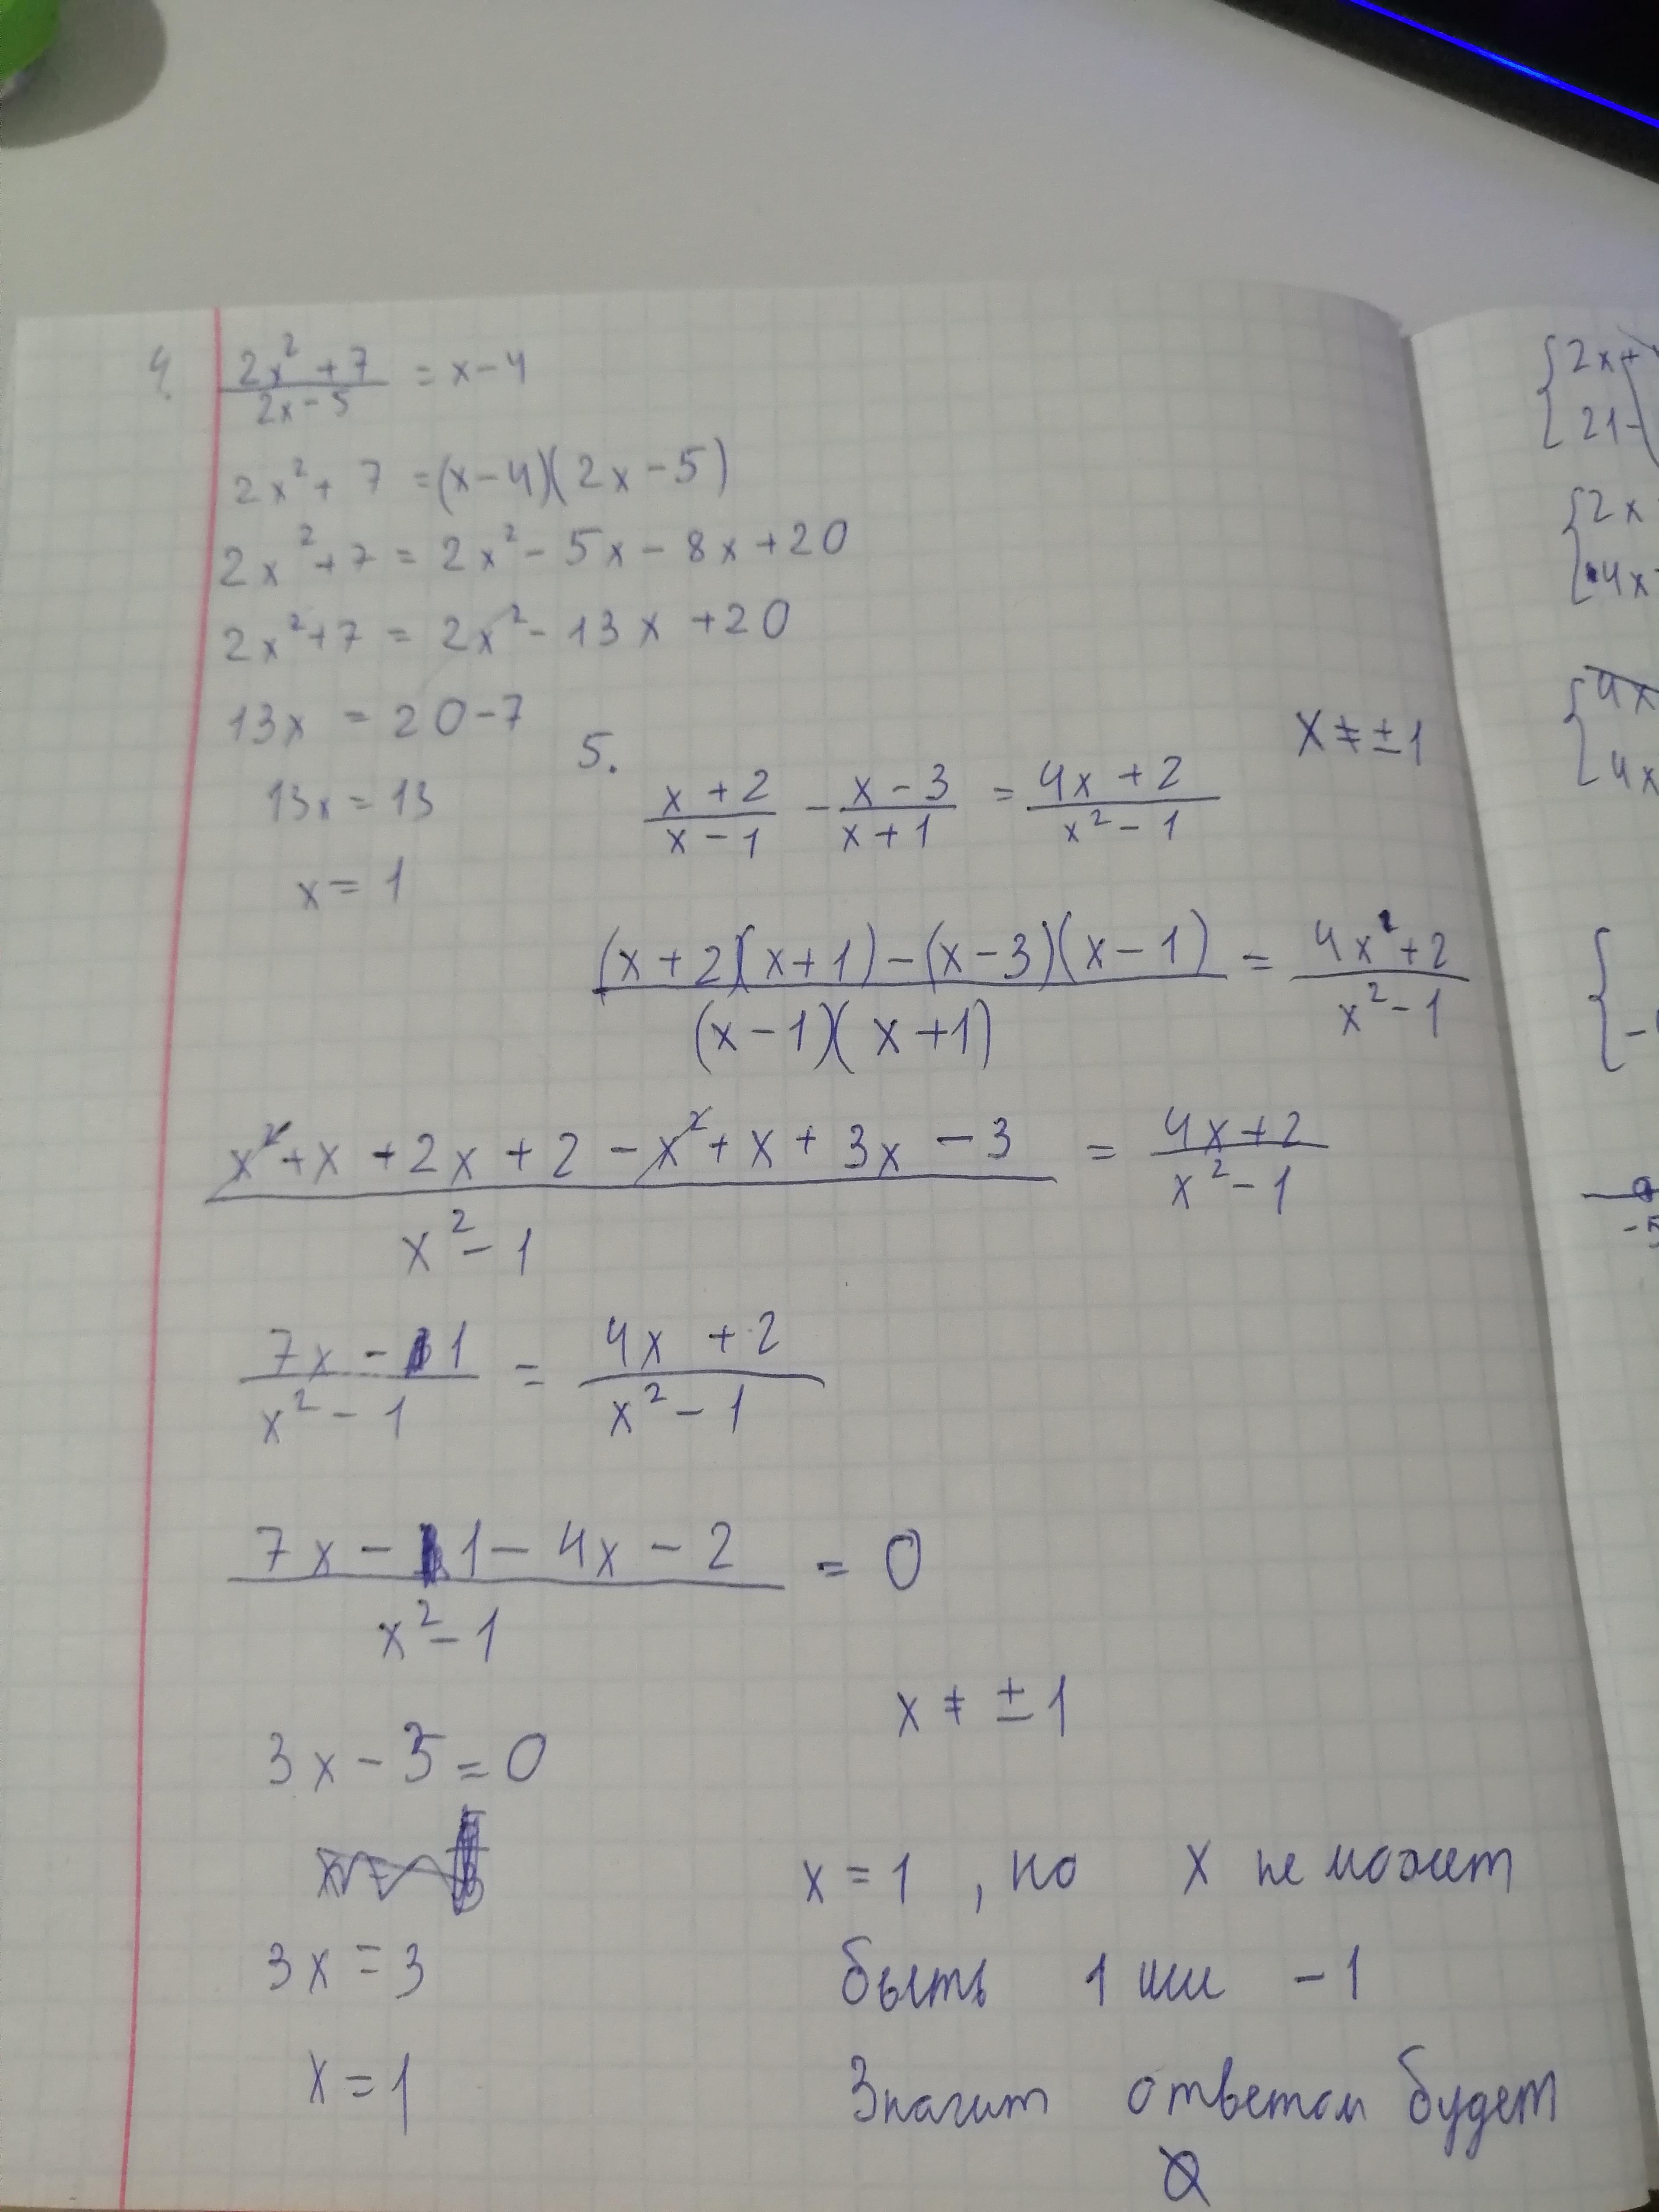 4. (2x² + 7)/(2x - 5) = x - 4
2x² + 7 = (x - 4)(2x - 5)
2x² + 7 = 2x² - 5x - 8x + 20
2x² + 7 = 2x² - 13x + 20
13x = 20 - 7
13x = 13
x = 1
5. (x + 2)/(x - 1) - (x - 3)/(x + 1) = (4x + 2)/(x² - 1)
x ≠ ±1
((x + 2)(x + 1) - (x - 3)(x - 1))/((x - 1)(x + 1)) = (4x + 2)/(x² - 1)
(x² + x + 2x + 2 - x² + x + 3x - 3)/(x² - 1) = (4x + 2)/(x² - 1)
(7x - 1)/(x² - 1) = (4x + 2)/(x² - 1)
(7x - 1 - 4x - 2)/(x² - 1) = 0
x ≠ ±1
3x - 3 = 0
3x = 3
x = 1
x = 1, но x не может
быть 1 или -1
Значит ответом будет
∅
{ 2x +
21 -
{ 2x
4x
{ 4x
4x
{
-
-5